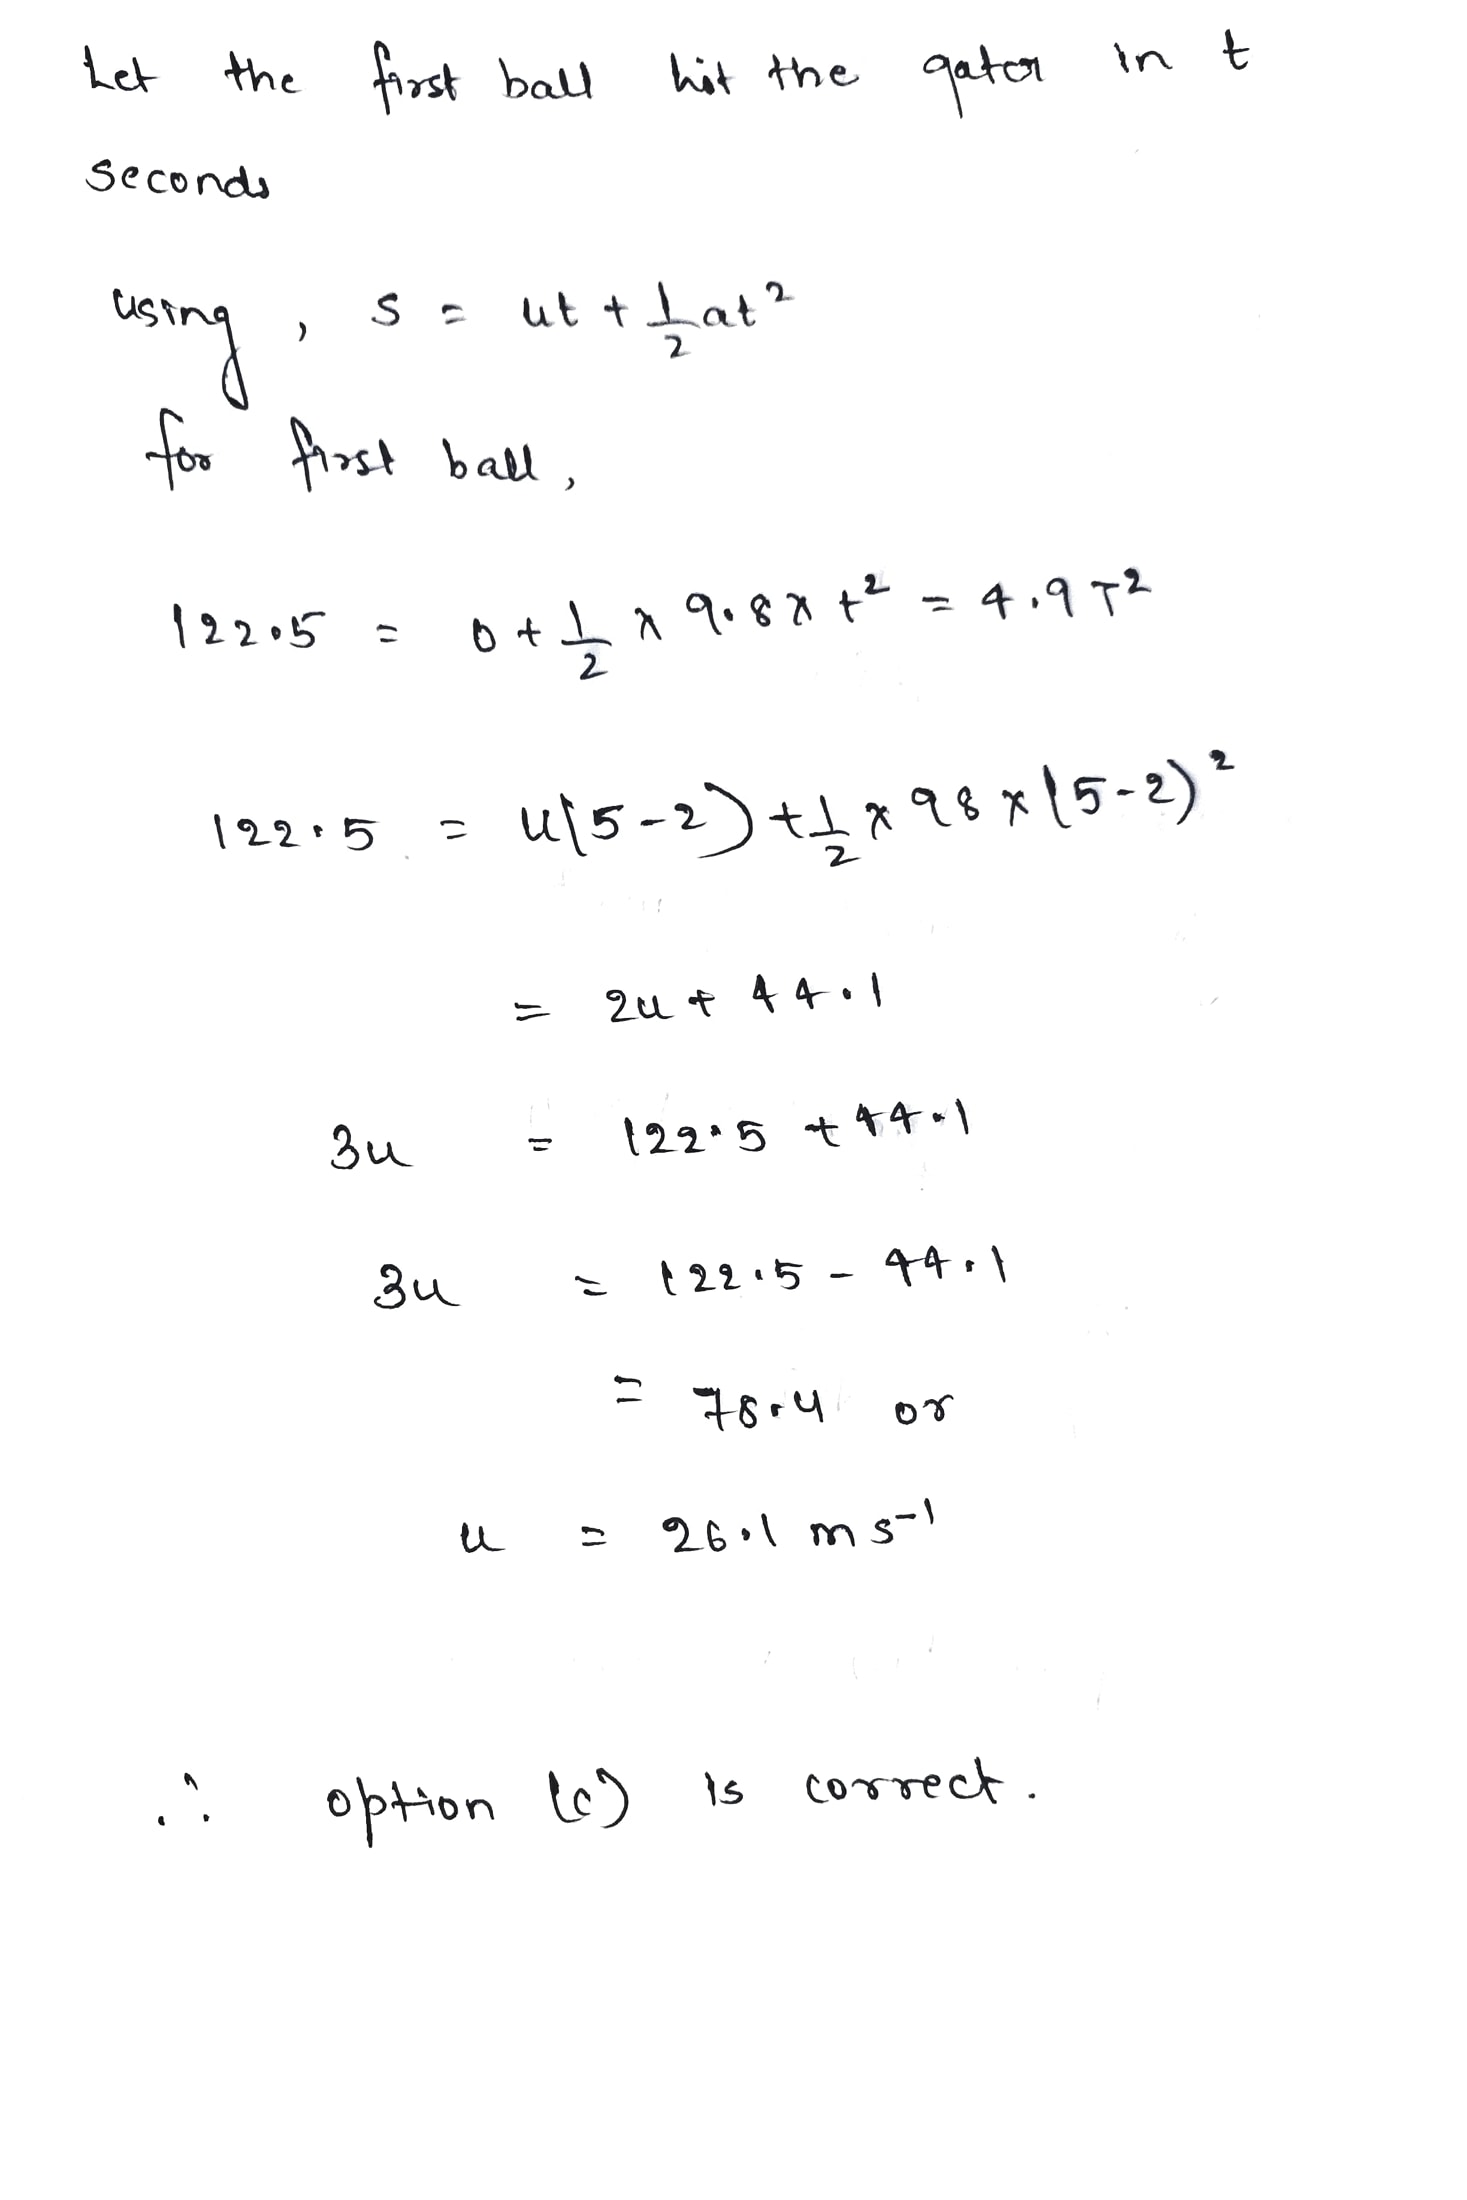 Let the first ball hit the gator in t
seconds
using, s = ut + 1/2 at²
for first ball,
122.5 = 0 + 1/2 x 9.8 x t² = 4.9 T²
122.5 = u(5-2) + 1/2 x 98 x (5-2)²
= 2u + 44.1
3u = 122.5 + 44.1
3u = 122.5 - 44.1
= 78.4 or
u = 26.1 ms⁻¹
∴ option (c) is correct.